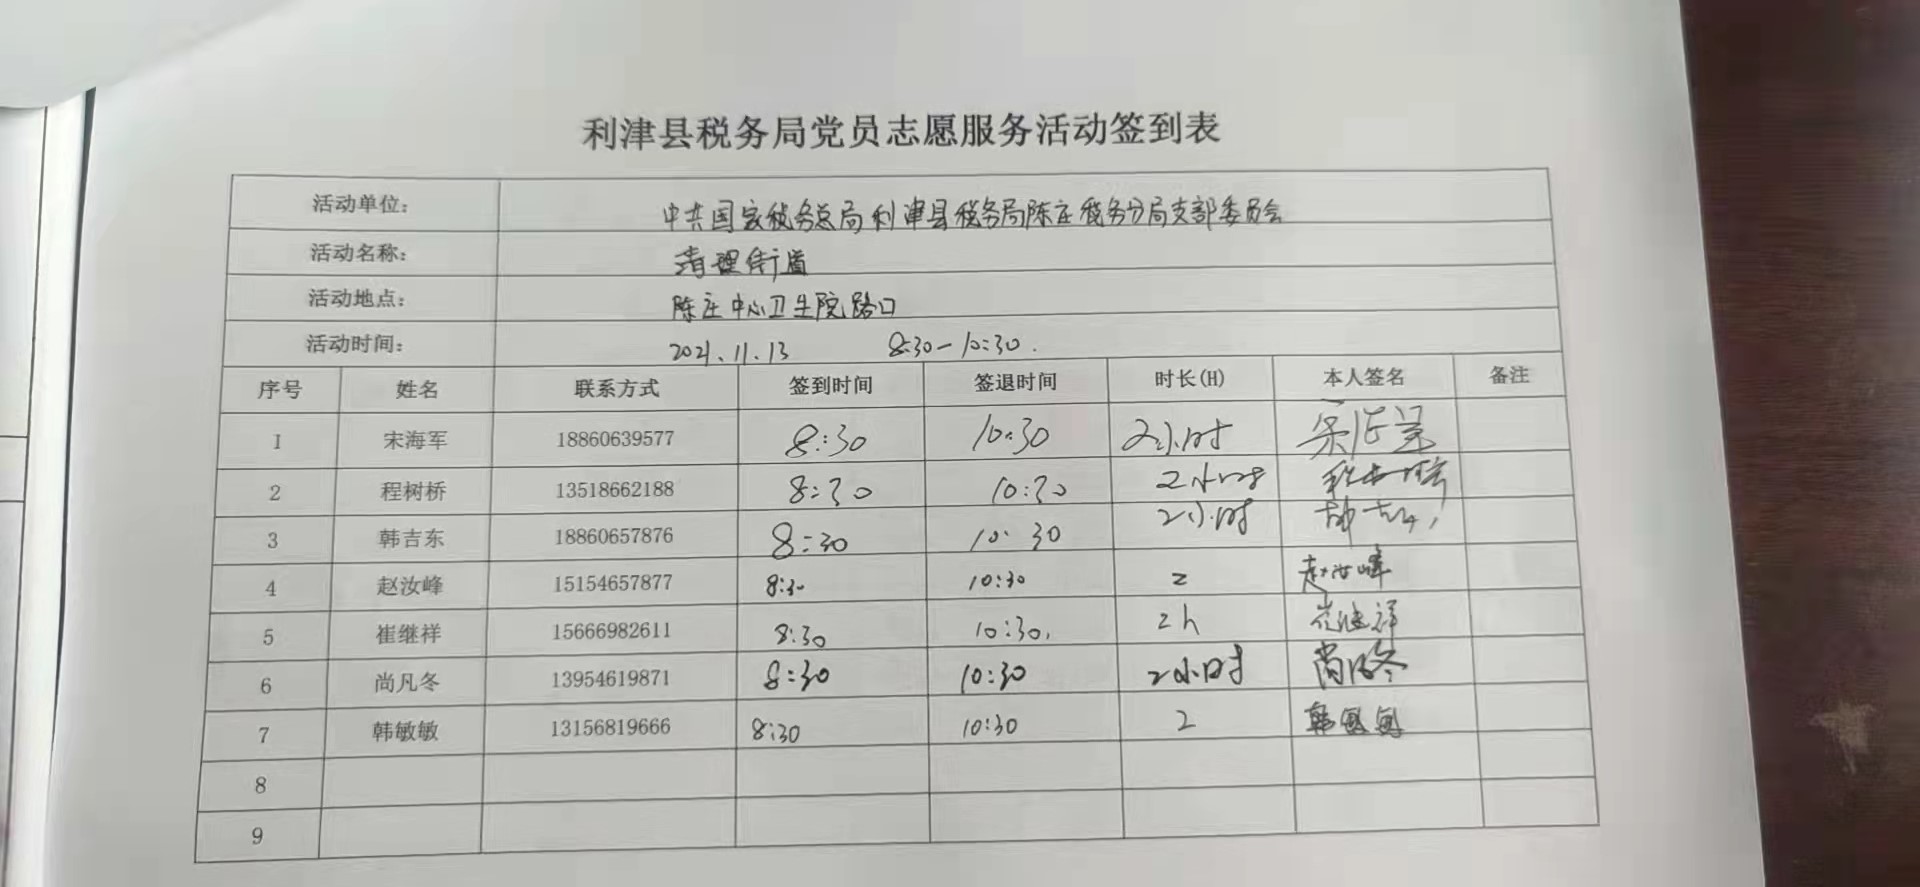 利津县税务局党员志愿服务活动签到表
活动单位： 中共国家税务总局利津县税务局陈庄税务分局支部委员会
活动名称： 清理街道
活动地点： 陈庄中心卫生院路口
活动时间： 2021.11.13 8:30-10:30.
序号 姓名 联系方式 签到时间 签退时间 时长(H) 本人签名 备注
1 宋海军 18860639577 8:30 10:30 2小时
2 程树桥 13518662188 8:30 10:30 2小时 程树桥
3 韩吉东 18860657876 8:30 10:30 2小时
4 赵汝峰 15154657877 8:30 10:30 2 赵汝峰
5 崔继祥 15666982611 8:30 10:30. 2h 崔继祥
6 尚凡冬 13954619871 8:30 10:30 2小时 尚凡冬
7 韩敏敏 13156819666 8:30 10:30 2 韩敏敏
8
9